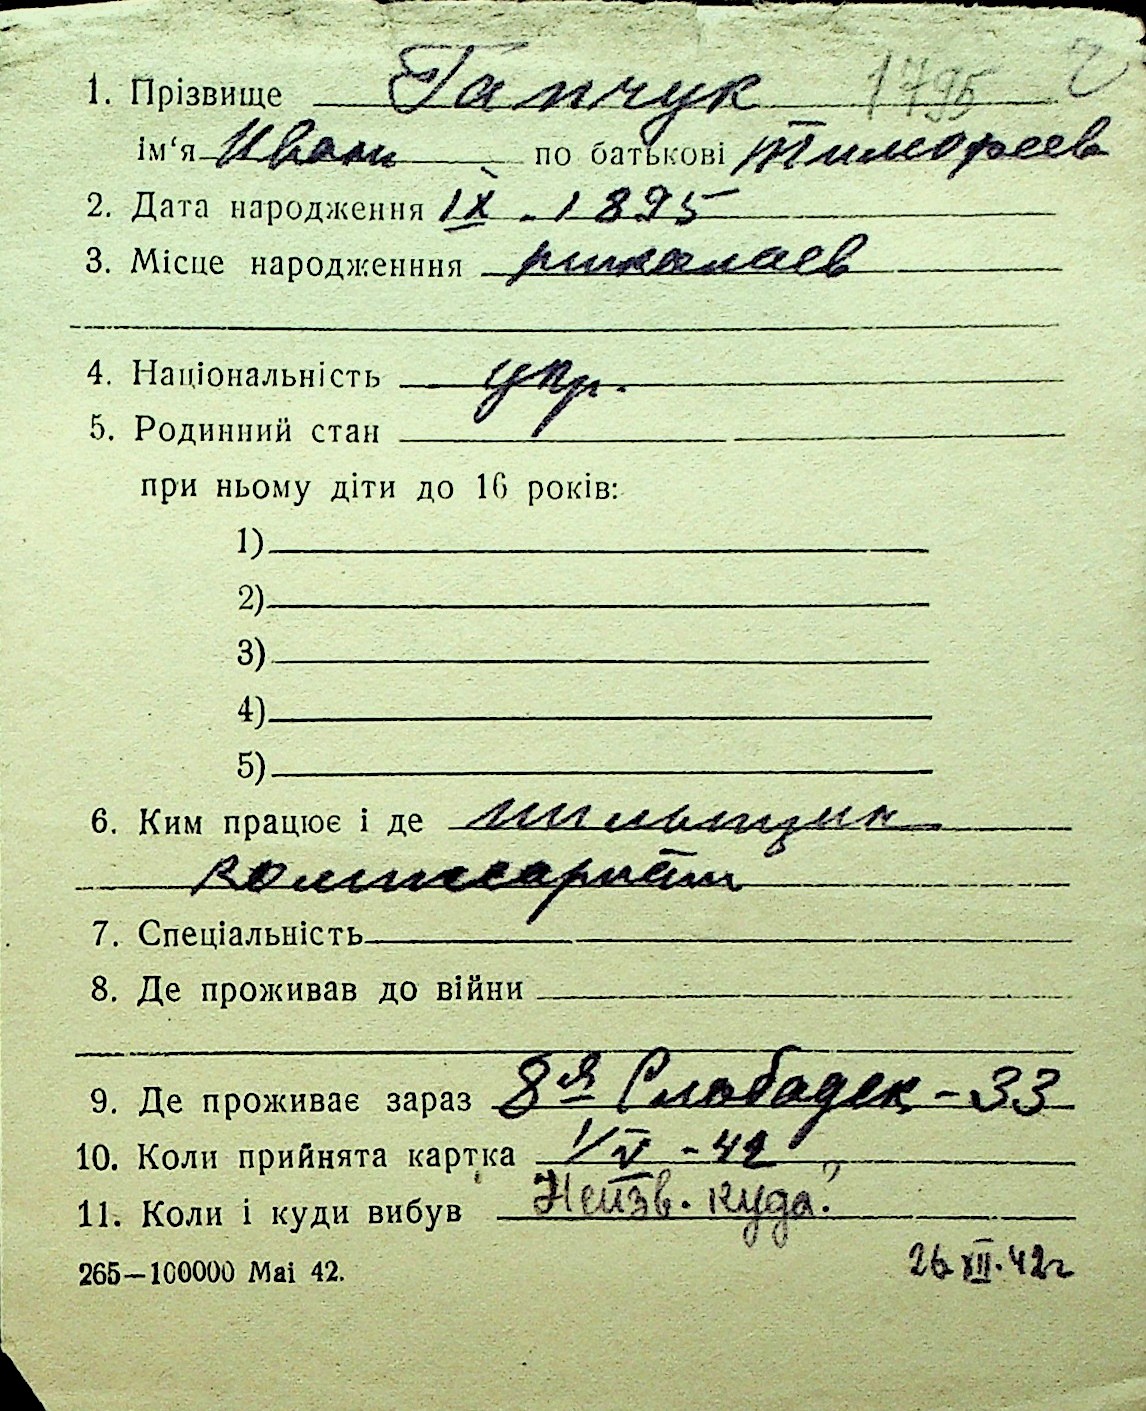 1. Прізвище Гапчук 1795
ім'я Иван по батькові Тимофеев
2. Дата народження IX - 1895
3. Місце народженння николаев
4. Національність укр.
5. Родинний стан
при ньому діти до 16 років:
1)
2)
3)
4)
5)
6. Ким працює і де пильщик
7. Спеціальність
8. Де проживав до війни
9. Де проживає зараз 8я Слободск - 33
10. Коли прийнята картка 1/V - 42
11. Коли і куди вибув Неизв. куда?
265—100000 Mai 42. 26 XII. 42г